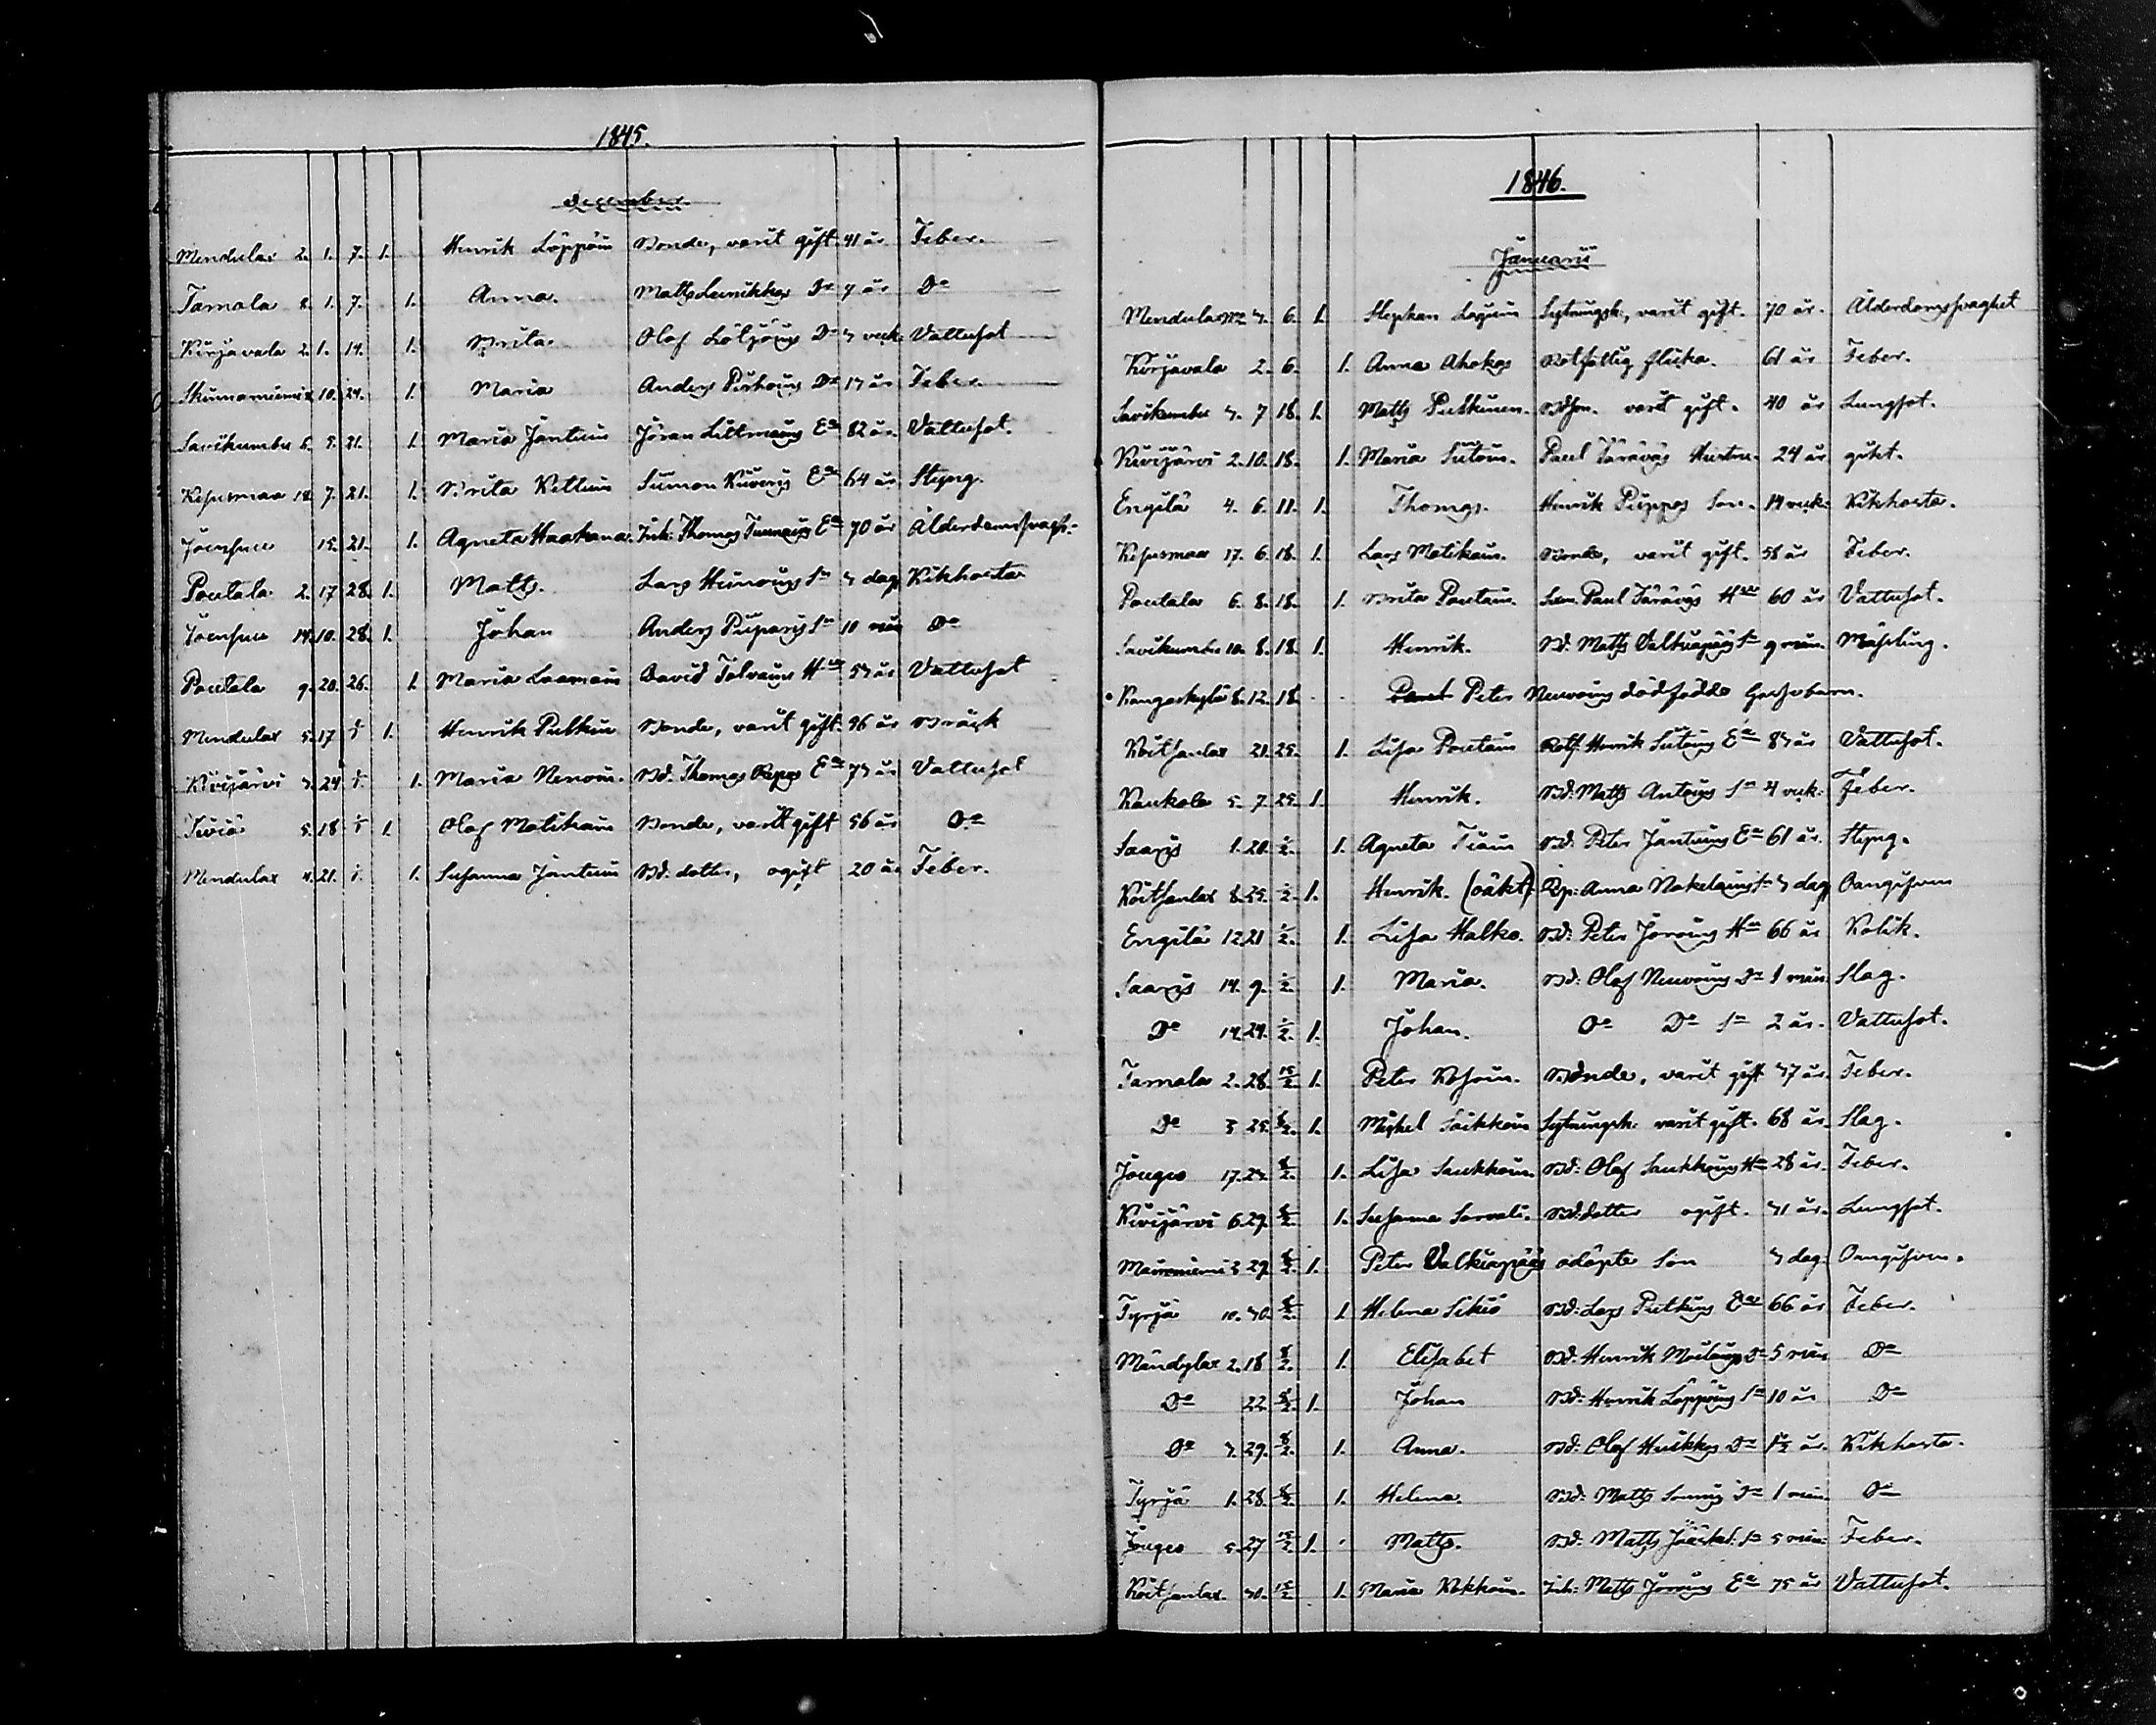 1845.
December
Mendulax 2. 1. 7. 1. Henrik Löppöin Bonde, varit gift 41 år Feber.
Tamala 2. 1. 7. 1. Anna. Matts Dr 7 år Do
Kirjavala 2. 1. 14. 1. Brita Olof Dr 3 veck. Vattusot
10. 24. 1. Maria Anders Dr 13 år Feber.
Savikumbu 6. 5. 21. 1. Maria Jantuin Jöran Littmains Ea 82 år. Vattusot.
Kesusmaa 18. 7. 21. 1. Brita Kettuin Simon Ea 64 år Styng.
Joensuu 15. 21. 1. Agneta Haakana. Inh. Thomas Ea 70 år Ålderdomssvagh.
Poutala 2. 17 28. 1. Matts. Lars Sn 3 dag Kikhosta
Joensuu 14. 10. 28. 1. Johan Anders Sn 10 mån Do
Poutala 9. 20. 26. 1. Maria Laamain David Hu 53 år Vattusot
Mendulax 5. 17 1. Henrik Bonde, varit gift. 46 år Bråck
Kivijärvi 3. 24 1. Maria Nenoin. Bd. Thomas Repos Ea 73 år Vattusot
5. 18 1. Olof Matikain Bonde, varit gift 56 år Do
Mendulax 4. 21. 1. Susanna Jantuin Bd. dotter, ogift 20 år Feber.
1846.
Januarii
Mendulax 3. 6. 1. Stephan Sytningsk., varit gift. 70 år. Ålderdomssvaghet
Kirjavala 2. 6. 1. Anna Ahokas Rotfattig flicka. 61 år Feber.
Savikumbu 3. 7 18. 1. Matts Putkinen. Bdson. varit gift. 40 år Lungsot.
Kivijärvi 2. 10. 18. 1. Maria Sutoin. Paul Hustru. 24 år gikt.
Engilä 4. 6. 11. 1. Thomas. Henrik Son. 14 veck. Kikhosta.
Kesusmaa 17. 6. 18. 1. Lars Matikain. Bonde, varit gift. 58 år Feber.
Poutala 6. 8. 18. 1. Brita Poutain. Paul Hu 60 år Vattusot.
Savikumbu 10. 8. 18. 1. Henrik. Bd. Matts Valkiapääs Sn 9 mån. Mässling.
Kangaskylä 8. 12. 18. Peter Neuvoins dödfödde
Koitsanlax 21. 25. 1. Lisa Poutain Rotf. Henrik Sutoins Ea 83 år Vattusot.
Kankala 5. 7. 25. 1. Henrik. Bd. Matts Antoins Sn 4 veck. Feber.
Saaris 1. 20. 1/2. 1. Agneta Tiain Bd. Peter Jantuins Ea 61 år. Styng.
Koitsanlax 8. 25. 1/2. 1. Henrik. (oäkt) Pig. Anna Sn 3 dag Oangifven
Engilä 12. 21 1/2. 1. Lisa Halko. Bd: Peter Hu 66 år Kolik.
Saaris 14. 9. 1/2. 1. Maria. Bd: Olof Neuvoins Dr 1 mån. Slag.
Do 14. 24. 1/2. 1. Johan. Do Do Sn 2 år. Vattusot.
Tamala 2. 28. 15/2. 1. Peter Kosoin. Bonde, varit gift 47 år. Feber.
Do 3 25. 8/2. 1. Michel Saikkoin Sytningsk. varit gift. 68 år. Slag.
Jougio 17. 24. 8/2. 1. Lisa Saukkoin. Bd: Olof Saukkoins Hu 28 år. Feber.
Kivijärvi 6. 29. 8/2. 1. Susanna Sorvali. Bd. dotter ogift. 41 år. Lungsot.
3 29. 8/2. 1. Peter Valkiapääs odöpte Son 3 dag. Oangifven.
Tyrjä 10. 30. 8/2. 1. Helena Sikiö Bd: Lars Putkins Ea 66 år Feber.
Mändylax 2. 18 8/2. 1. Elisabet Bd. Henrik Dr 5 mån Do
Do 22. 8/2. 1. Johan Bd: Henrik Löppöins Sn 10 år Do
Do 3. 29. 8/2. 1. Anna. Bd: Olof Huikkos Dr 1 1/2 år. Kikhosta.
Tyrjä 1. 28. 8/2. 1. Helena. Bd: Matts Dr 1 mån. Do
Jougio 5. 27 15/2. 1. Matts. Bd: Matts Sn 5 mån: Feber.
Koitsanlax. 30. 15/2. 1. Maria Kokkoin. Inh: Matts Ea 75 år Vattusot.